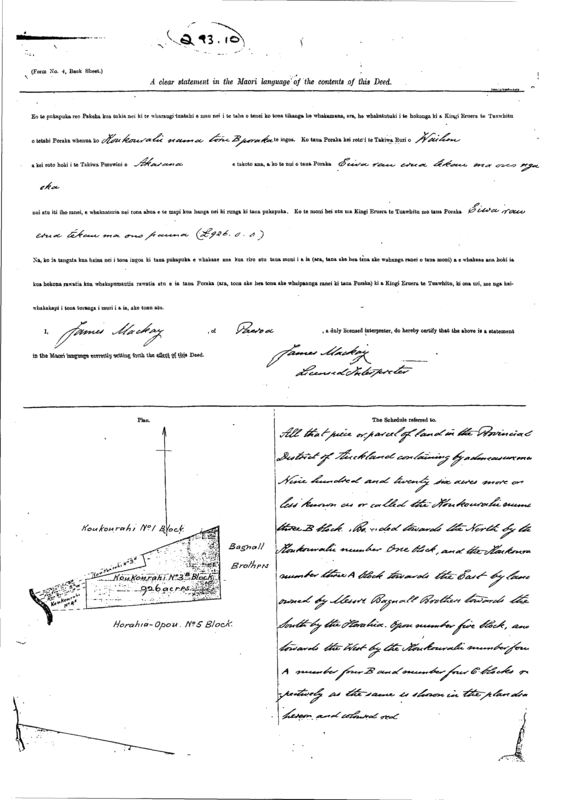 293.10
(Form No. 4, Back Sheet.)
A clear statement in the Maori language of the contents of this Deed.
Ko te pukapuka reo Pakeha kua tuhia nei ki te wharangi tuatahi o muu nei i te taha o tenei ko tona tikanga he whakamana, ara, he whakatutuki i te hokonga ki a Kingi Eruera te Tuawhitu
o tetahi Poraka whenua ko Koukourahi nama toru B poraka te ingoa. Ko taua Poraka kei roto i te Takiwa Ruri o Waihou
a kei roto hoki i te Takiwa Porowini o Akarana e takoto ana, a ko te nui o taua Poraka Eiwa rau e rua tekau ma ono nga
eka
nui atu iti iho ranei, e whakaaturia nei tona ahua e te mapi kua hanga nei ki runga ki tana pukapuka. Ko te moni hei utu ma Kingi Eruera te Tuawhitu mo taua Poraka Eiwa rau
e rua tekau ma ono pauna (£926.0.0)
Na, ko ia tangata kua haina nei i tona ingoa ki tana pukapuka e whakaae ana kua riro atu taua moni i a ia (ara, tana ake hea tana ake wahanga ranei o taua moni) a e whakaae ana hoki ia
kua hokona rawatia kua whakapumautia rawatia atu e ia taua Poraka (ara, tona ake hea tona ake whaipaanga ranei ki taua Poraka) ki a Kingi Eruera te Tuawhitu, ki ona uri, me nga kai-
whakakapi i tona turanga i muri i a ia, ake tonu atu.
I, James Mackay, of Paeroa, a duly licensed interpreter, do hereby certify that the above is a statement
in the Maori language correctly setting forth the effect of this Deed.
James Mackay
Licensed Interpreter
Plan.
Koukourahi No 1 Block.
Bagnall
Brothers
Koukourahi No 3B Block
926 acres
Horahia-Opou. No 5 Block.
The Schedule referred to.
All that piece or parcel of land in the Provincial
District of Auckland containing by admeasureme
Nine hundred and twenty six acres more or
less known as or called the Koukourahi num
three B block. Bounded towards the North by the
Koukourahi number One block, and the Koukoura
number three A block towards the East by land
owned by Messrs Bagnall Brothers towards the
South by the Horahia Opou number five block, and
towards the West by the Koukourahi number four
A number four B and number four C blocks
pectively as the same is shown in the plan
hereon and coloured red